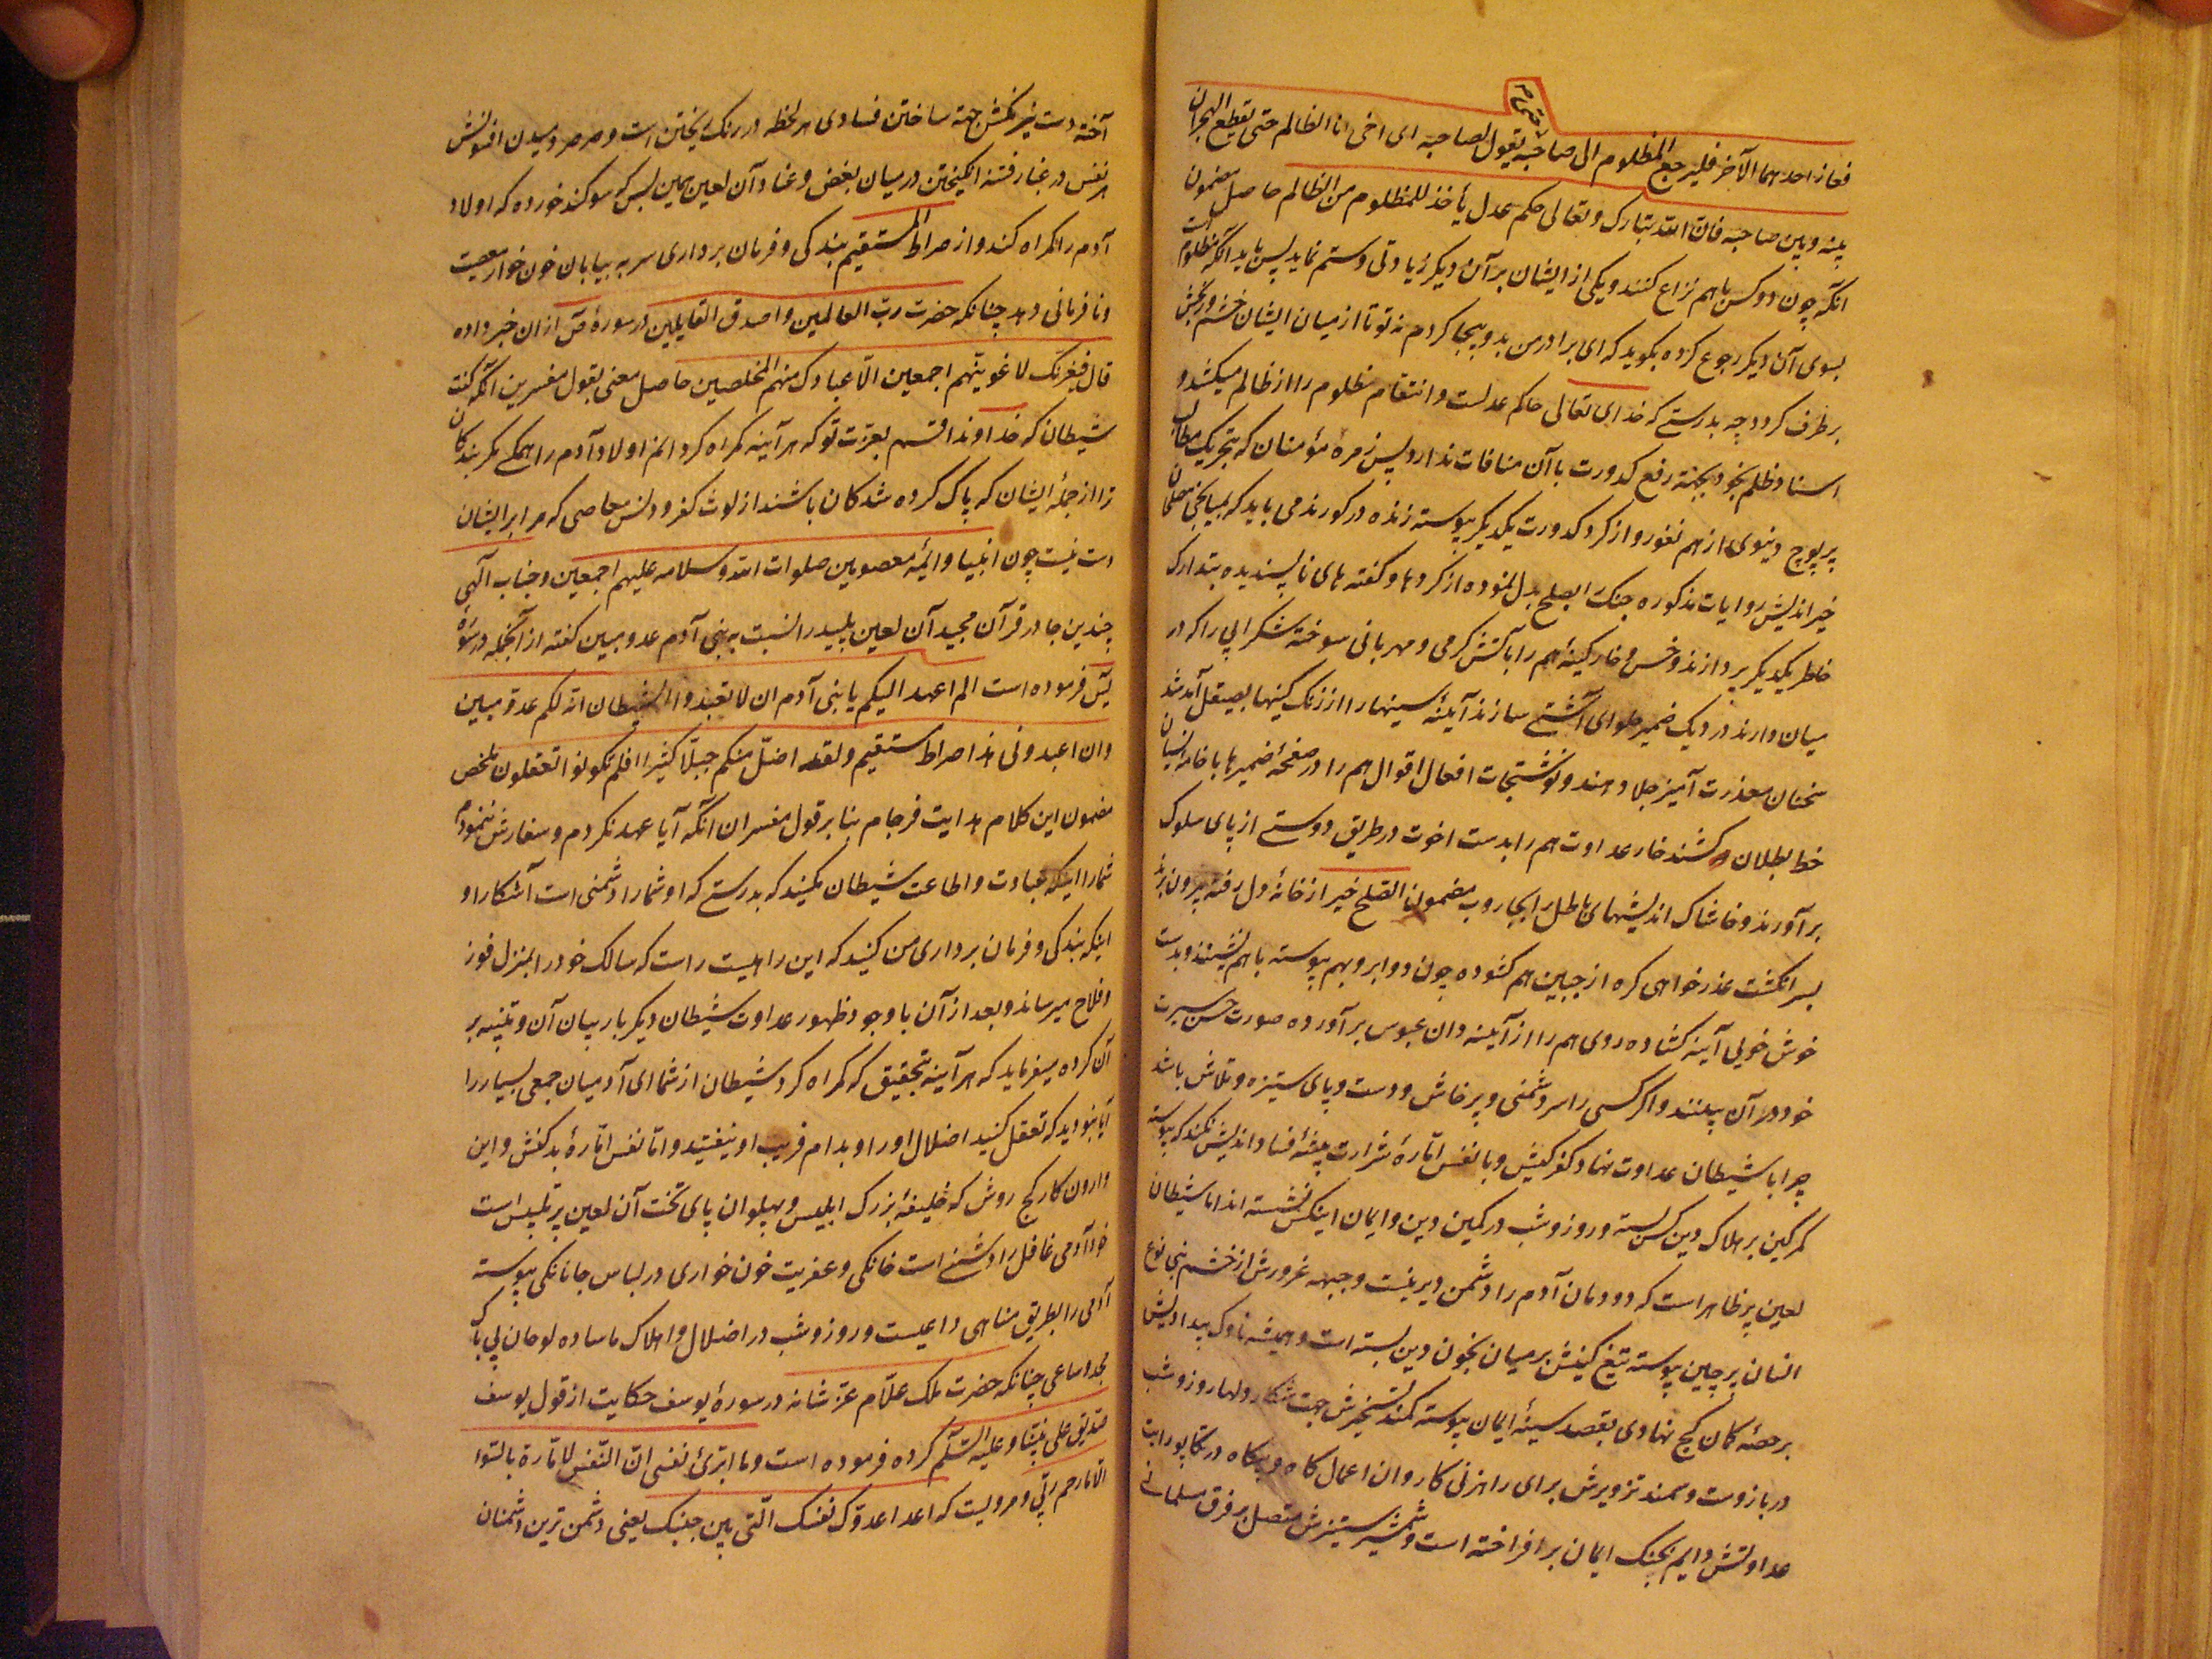 فعاز احدهما الآخر فلیرجع المظلوم الی صاحبه حتی یقول لصاحبه ای اخی انا الظالم حتی یقطع الهجران
بینه و بین صاحبه فان الله تبارک و تعالی حکم عدل یأخذ للمظلوم من الظالم حاصل مضمون
انکه چون دو کس با هم نزاع کنند و یکی از ایشان بر آن دیگر زیادتی و ستم نماید پس باید آنکه مظلوم است
بسوی آن دیگر رجوع کرده بگوید که ای برادر من بد و بیجا کردم نه تو تا از میان ایشان خشم و رنجش
برطرف گردد چه بدرستی که خدای تعالی حاکم عدلست و انتقام مظلوم را از ظالم میکشد و
اسناد ظلم بخود بجهة رفع کدورت با آن منافات ندارد پس زمره مؤمنان که بتحریک مطالب
پر پوچ دنیوی از هم نفور و از گرد کدورت یکدیگر پیوسته زنده در گورند می باید که بمیانجی مصلحان
خیر اندیش روایات مذکوره جنگ را بصلح بدل نموده از کردها و گفته های ناپسندیده بتدارک
خاطر یکدیگر پردازند و خس و خار کینهٔ هم را بآتش گرمی و مهربانی سوخته شکرابی را که در
میان دارند در دیگ ضمیر حلوای آشتی سازند آیینهٔ سینها را از زنگ کینها بصیقل آمد شد
سخنان معذرت آمیز جلا دهند و نوشتجات افعال و اقوال هم را در صفحهٔ ضمیرها با خامهٔ نسیان
خط بطلان کشند خار عداوت هم را بدست اخوت در طریق دوستی از پای سلوک
برآورند و خاشاک اندیشهای باطل را بجاروب مضمون الصلح خیر از خانهٔ دل رفته بیرون برند
بسر انگشت عذرخواهی گره از جبین هم گشوده چون دو ابرو بهم پیوسته با هم نشینند و بدست
خوش خویی آینه گشاده روی هم را از آیینه دان عبوس برآورده صورت حسن سیرت
خود در آن بینند و اگر کسی را سر دشمنی و پرخاش و دست و پای ستیزه و تلاش باشد
چرا با شیطان عداوت نهاد کفرکیش و با نفس امارهٔ شرارت پیشهٔ فساد اندیش نکند که پیوسته
کمر کین بر هلاک دین کس بسته و روز و شب در کمین دین و ایمان اینکس نشسته اند اما شیطان
لعین پر ظاهر است که دودمان آدم را دشمن دیرینست و جبهه غرورش از خشم بنی نوع
انسان پرچین پیوسته تیغ کینش بر میان بخون دین بسته است و همیشه ناوک بیدادیش
بر حصهٔ کمان کج نهادی بقصد سینهٔ ایمان پیوسته کمند تسخیرش جهت شکار دلها روز و شب
در بازوست و سمند تزویرش برای راهزنی کاروان اعمال گاه و بیگاه در تکاپو رایت
عداوتش دایم بجنگ ایمان برافراخته است و شمشیر ستیزش متصل بر فرق مسلمانی
آخته دست نیرنگش جهة ساختن فسادی هر لحظه در رنگ ریختن است و صرصر دمیدن افسونش
هر نفس در غبار فتنه انگیختن در میان بغض و عناد آن لعین همین بس که سوگند خورده که اولاد
آدم را گمراه کند و از صراط المستقیم بندگی و فرمان برداری سر به بیابان خون خوار معصیت
و نافرمانی دهد چنانکه حضرت رب العالمین و اصدق القایلین در سورهٔ ص از ان خبر داده
قال فبعزتک لاغوینّهم اجمعین الّا عبادک منهم المخلصین حاصل معنی بقول مفسرین آنکه گفت
شیطان که خداوندا قسم بعزت تو که هر آینه گمراه گردانم اولاد آدم را همگی مگر بندگان
ترا از جملهٔ ایشان که پاک کرده شدکان باشند از لوث کفر و دنس معاصی که مرا بر ایشان
دست نیست چون انبیا و ایمهٔ معصومین صلوات الله و سلامه علیهم اجمعین و جناب الهی
چندین جا در قرآن مجید آن لعین پلید را نسبت به بنی آدم عدو مبین گفته از آنجمله در سورهٔ
یس فرموده است الم اعهد الیکم یا بنی آدم ان لا تعبدوا الشیطان انه لکم عدوّ مبین
و ان اعبدونی هذا صراط مستقیم و لقد اضلّ منکم جبلّا کثیرا افلم تکونوا تعقلون ملخص
مضمون این کلام هدایت فرجام بنا بر قول مفسران آنکه آیا عهد نکردم و سفارش ننمودم
شما را اینکه عبادت و اطاعت شیطان مکنید که بدرستی که او شما را دشمنی است آشکارا و
اینکه بندگی و فرمان برداری من کنید که این راهیست راست که سالک خود را بمنزل فوز
و فلاح میرساند و بعد از آن باوجود ظهور عداوت شیطان دیگر بار بیان آن و تنبیه بر
آن کرده میفرماید که هر آینه بتحقیق که گمراه کرد شیطان از شما ای آدمیان جمعی بسیار را
آیا نبودید که تعقل کنید اضلال او را و بدام فریب او نیفتید و اما نفس امارهٔ بدکنش و این
وارون کار کج روش که خلیفهٔ بزرگ ابلیس و پهلوان پای تخت آن لعین پر تلبیس است
خود آدمی غافل را دشمنی است خانگی و عفریت خون خواری در لباس جانانگی پیوسته
آدمی را بطریق مناهی داعیست و روز و شب در اضلال و اهلاک ما ساده لوحان بی باک
بجد ساعی چنانکه حضرت ملک علّام عزّ شانه در سورهٔ یوسف حکایت از قول یوسف
صدیق علی نبینا و علیه السّلم کرده فرموده است و ما ابرّئ نفسی انّ النّفس لامّارة بالسّوء
الّا ما رحم ربّی و مرویست که اعدا عدوّک نفسک الّتی بین جنبیک یعنی دشمن ترین دشمنان